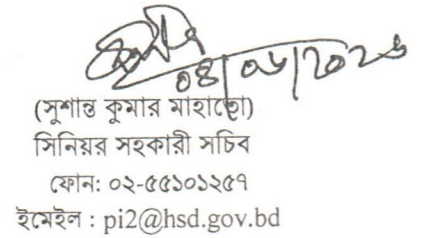 (সুশান্ত কুমার মাহাতো)
সিনিয়র সহকারী সচিব
ফোন: ০২-৫৫১০১২৫৭
ইমেইল : pi2@hsd.gov.bd